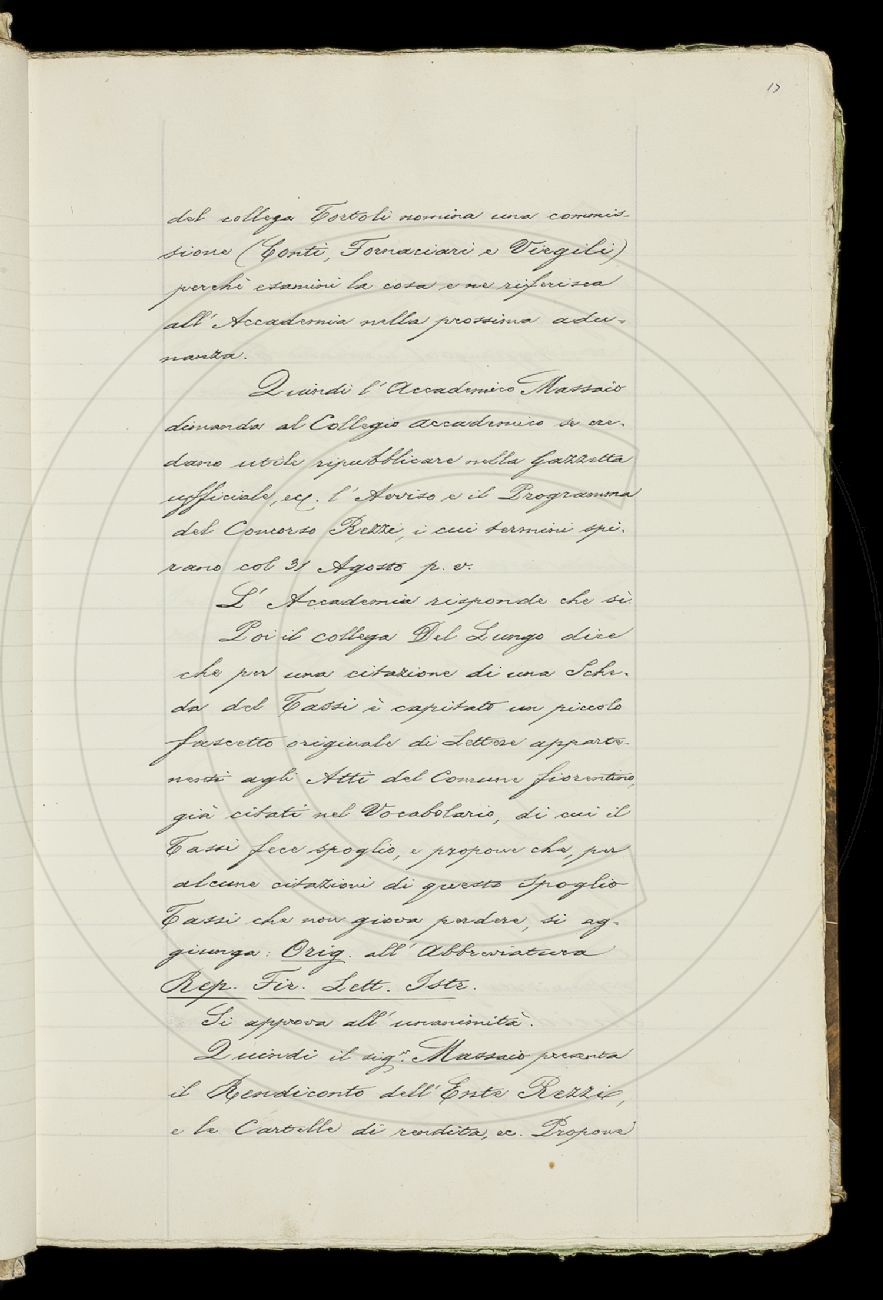 17
del collega Tortoli nomina una commis-
sione (Conti, Fornaciari e Virgili)
perchè esamini la cosa e ne riferisca
all' Accademia nella prossima adu-
nanza.
Quindi l' Accademico Massaio
dimanda al Collegio accademico se cre-
dano utile ripubblicare nella Gazzetta
ufficiale, ecc. l' Avviso e il Programma
del Concorso Rezzi, i cui termini spi-
rano col 31 Agosto p. v.
L' Accademia risponde che sì.
Poi il collega Del Lungo dice
che per una citazione di una Sche-
da del Tassi è capitato un piccolo
fascetto originale di Lettere apparte-
nenti agli Atti del Comune fiorentino,
già citati nel Vocabolario, di cui il
Tassi fece spoglio, e propone che, per
alcune citazioni di questo Spoglio
Tassi che non giova perdere, si ag-
giunga: Orig. all' Abbreviatura
Rep. Fir. Lett. Istr.
Si approva all' unanimità.
Quindi il sigr. Massaio presenta
il Rendiconto dell' Ente Rezzi,
e le Cartelle di rendita, ec. Propone